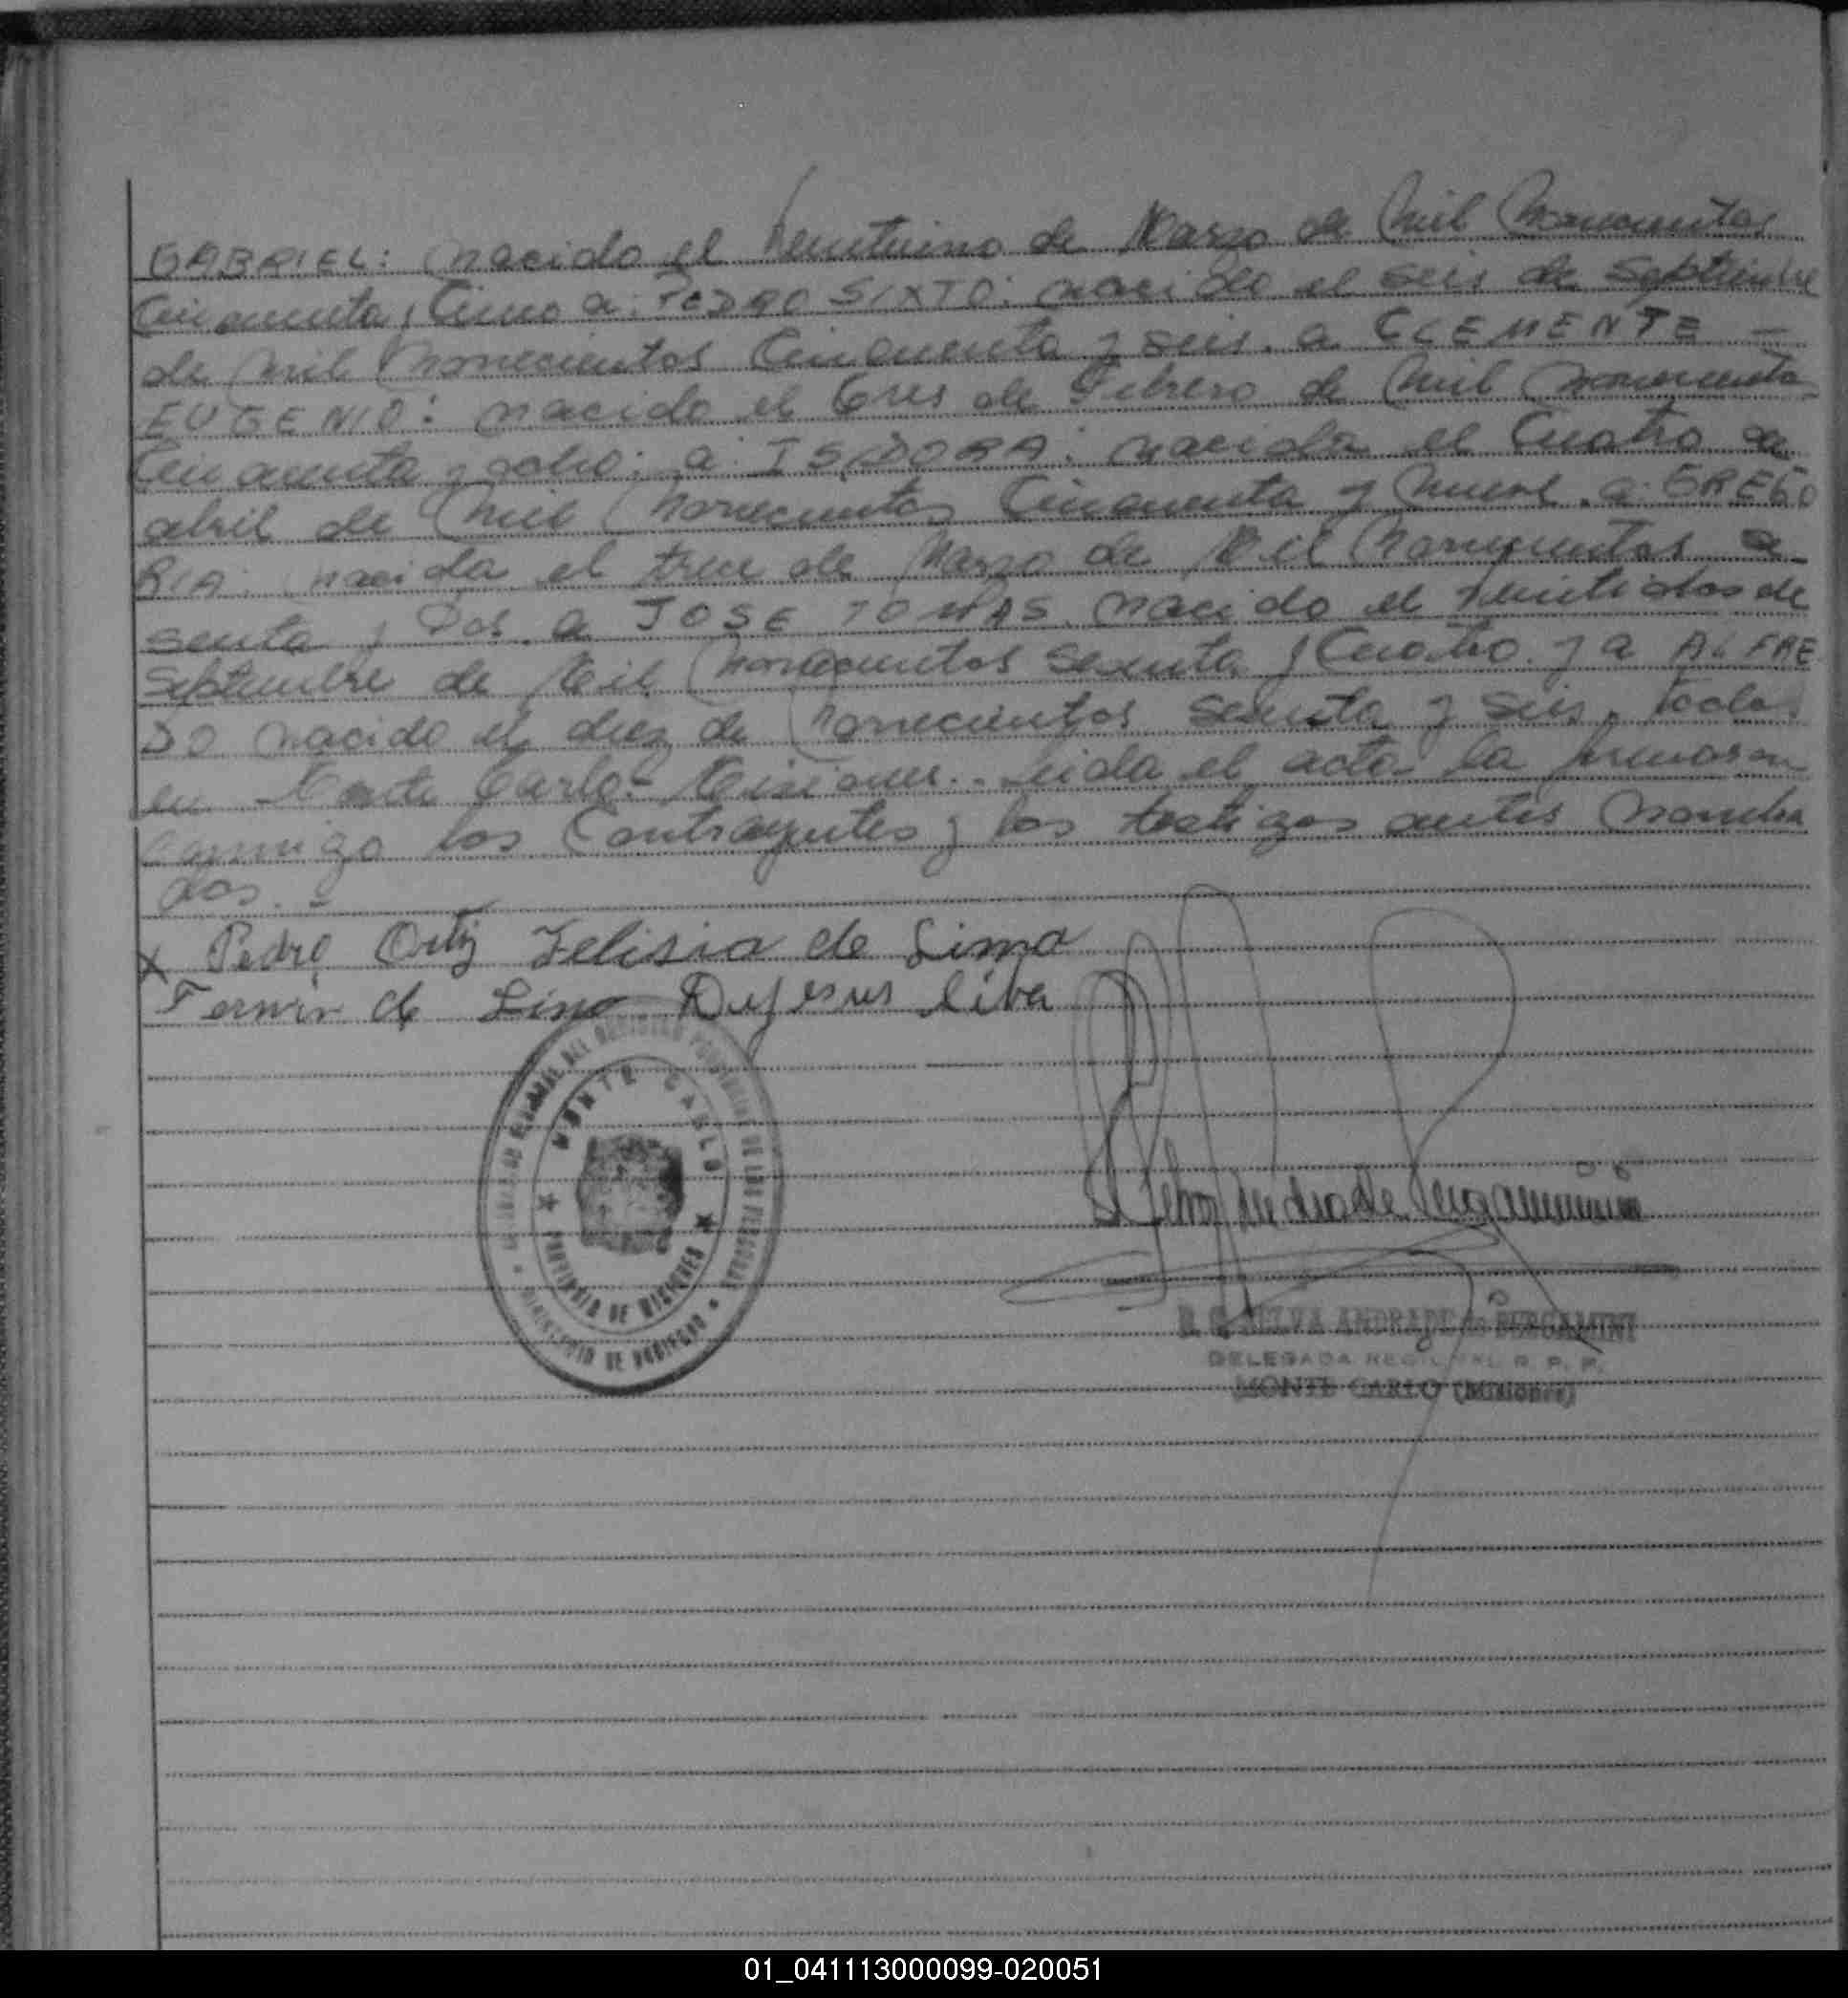 GABRIEL: nacido el veintiuno de Marzo de Mil Novecientos
Cincuenta y Cinco a: PEDRO SIXTO: nacido el seis de Septiembre
de Mil Novecientos Cincuenta y seis. a CLEMENTE =
EUGENIO: nacido el tres de Febrero de Mil novecientos
Cincuenta y ocho: a: ISIDORA: nacida el Cuatro de
abril de Mil Novecientos Cincuenta y Nueve. a: GREGO
RIA: nacida el trece de Marzo de Mil Novecientos se
senta y Dos. a JOSE TOMAS. nacido el veintidos de
Septiembre de Mil Novecientos sesenta y Cuatro. y a ALFRE
DO nacido el diez de Novecientos sesenta y seis. todos
en Monte Carlo - Misiones.. Leida el acta la firmaron
conmigo los Contrayentes y los testigos antes nombra
dos. -
x Pedro Ortiz Felisia de Lima
Fermin de Lima Dejesus
MONTE CARLO
PROVINCIA DE MISIONES
MINISTERIO DE GOBIERNO
DEL REGISTRO PROVINCIAL DE LAS PERSONAS
Selva Andrade Bergamini
SELVA ANDRADE de BERGAMINI
DELEGADA REGIONAL R. P. P.
MONTE CARLO (Misiones)
01_041113000099-020051